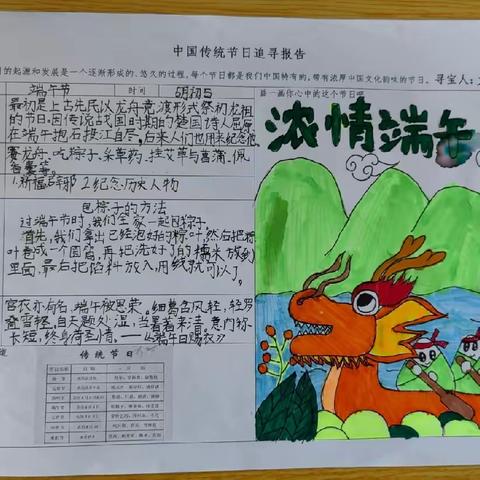 中国传统节日追寻报告
的起源和发展是一个逐渐形成的、悠久的过程，每个节日都是我们中国特有的，带有浓厚中国文化韵味的节日。 寻宝人：
端午节 时间 5月初5
最初是上古先民以龙舟竞渡形式祭祀龙祖
的节日。因传说战国时期的楚国诗人屈原
在端午抱石投江自尽，后来人们也用来纪念他
赛龙舟、吃粽子、采草药、挂艾草与菖蒲、佩
香囊等。
1.祈福辟邪 2.纪念历史人物
包粽子的方法
过端午节时，我们全家一起包粽子。
首先，我们拿出已经泡好的粽叶，然后把粽
叶卷成一个圆台，再把洗好了的糯米放到
里面，最后把馅料放入，用线就可以了。
宫衣亦有名，端午被恩荣。细葛含风软，香罗
叠雪轻。自天题处湿，当暑着来清。意内称
长短，终身荷圣情。——《端午日赐衣》
传统节日
画一画你心中的这个节日吧
浓情端午